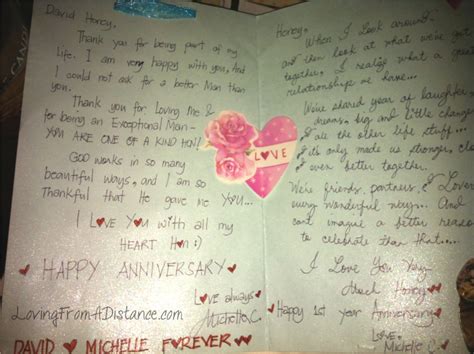 David Honey,
Thank you for being part of my
life. I am very happy with you, And
I could not ask for a better Man than
You.
Thank you for Loving Me &
for being an Exceptional Man-
YOU ARE ONE OF A KIND HON!
GOD works in so many
beautiful ways, and I am so
Thankful that He gave me YOU...
I LOVE YOU with all my
HEART Hon :)
HAPPY ANNIVERSARY
Love always
Michelle C.
LovingFromADistance.com
DAVID MICHELLE FOREVER
LOVE
Honey,
When I Look around-
and then look at what we've got
together, I realize what a great
relationship we have...
We've shared year of laughter
dreams, big and little changes
all the other life stuff...
it's only made us stronger, close
even better together.
We're friends, partners, & Lovers
every wonderful ways... And
cant imagine a better reason
to celebrate than that...
I Love You Very
Much Honey
Happy 1st year Anniversary
Love:
Michelle C.